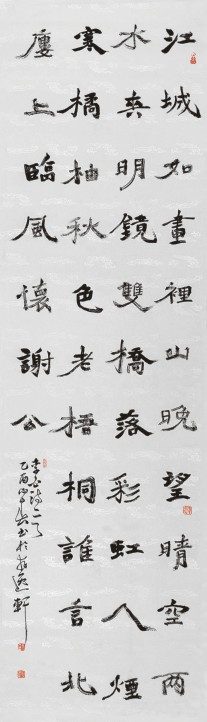 江城如畫裡山晚望晴空兩
水夾明鏡雙橋落彩虹人煙
寒橘柚秋色老梧桐誰言北
廔上臨風懷謝公
李白詩一首
乙酉 書於 逸軒